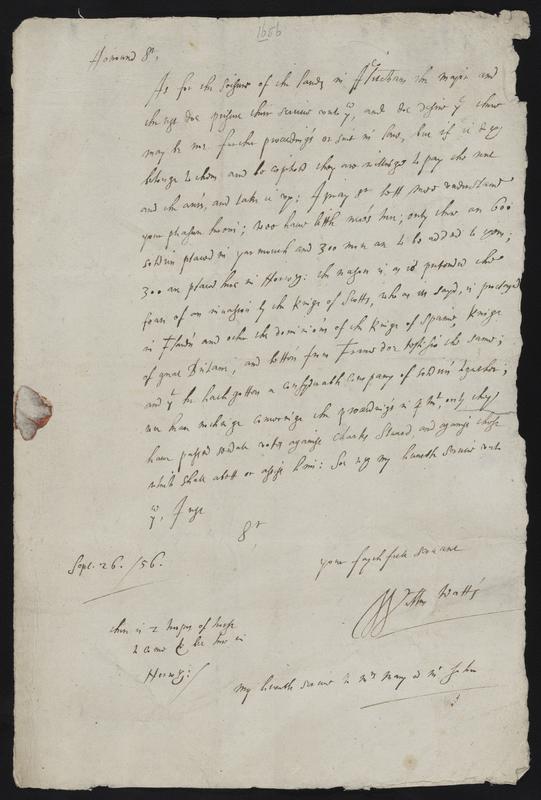 1656
Honoured Sr,
As for the seisure of the lands in the major and
the rest doe present their service unto yu, and doe desire yt there
may be no further proceedings or suit in law, but if it do
belonge to them and be copihold they are willinge to pay the rent
and the and take it up; I pray Sr lett mee understand
your pleasure herein; wee have little newes here; only there are 600
soldiers placed in yarmouth and 300 more are to be added to them;
300 are placed here in Norwch: the reason is as is pretended the
feare of an invasion by the Kinge of Scotts, who as is sayd, is proclaymed
in Fland's and other the dominions of the Kinge of Spaine, Kinge
of great Britaine, and letters from France doe testifie the same;
and yt he hath gotten a considerable company of soldiers together;
wee heare nothinge concerninge the proceedings in Plmt, only they
have passed severall votes against Charles Steward, and against those
which shall abett or assist him: Soe with my humble service unto
yu, I rest
Sr
your faythfull servant
Sept. 26. /56.
Watts
there is 2 troopes of horse
to come to lie here in
Norwch:/
My humble service to Mrs Mary & Mr John